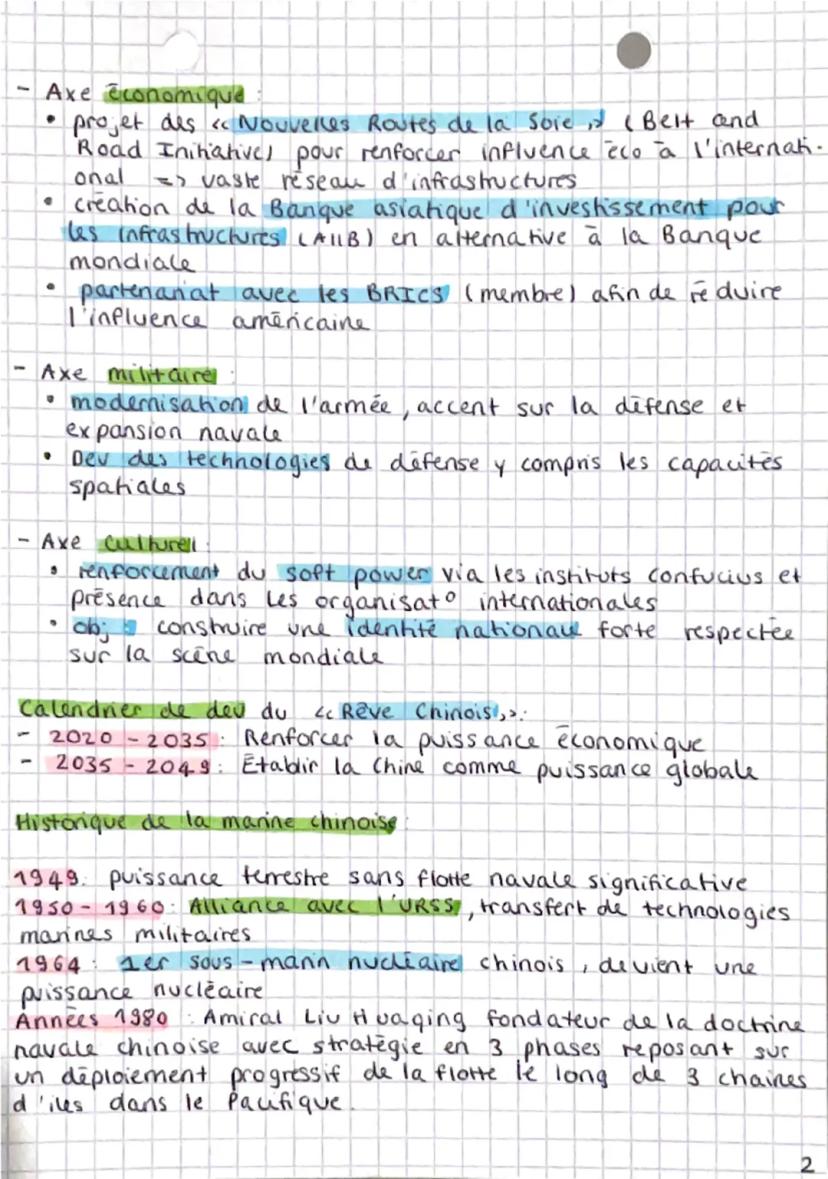 - Axe économique :
• projet des « Nouvelles Routes de la Soie » (Belt and
Road Initiative) pour renforcer influence éco à l'internati-
onal => vaste réseau d'infrastructures
• création de la Banque asiatique d'investissement pour
les infrastructures (AIIB) en alternative à la Banque
mondiale
• partenariat avec les BRICS (membre) afin de réduire
l'influence américaine
- Axe militaire :
• modernisation de l'armée, accent sur la défense et
expansion navale
• Dev des technologies de défense y compris les capacités
spatiales
- Axe culturel :
• renforcement du soft power via les instituts confucius et
présence dans les organisat° internationales
• obj : construire une identité nationale forte respectée
sur la scène mondiale
Calendrier de dev du « Rêve Chinois » :
- 2020 - 2035 : Renforcer la puissance économique
- 2035 - 2049 : Établir la Chine comme puissance globale
Historique de la marine chinoise :
1949 : puissance terrestre sans flotte navale significative
1950 - 1960 : Alliance avec l'URSS, transfert de technologies
marines militaires
1964 : 1er sous-marin nucléaire chinois, devient une
puissance nucléaire
Années 1980 : Amiral Liu Huaqing fondateur de la doctrine
navale chinoise avec stratégie en 3 phases reposant sur
un déploiement progressif de la flotte le long de 3 chaines
d'iles dans le Pacifique.
2